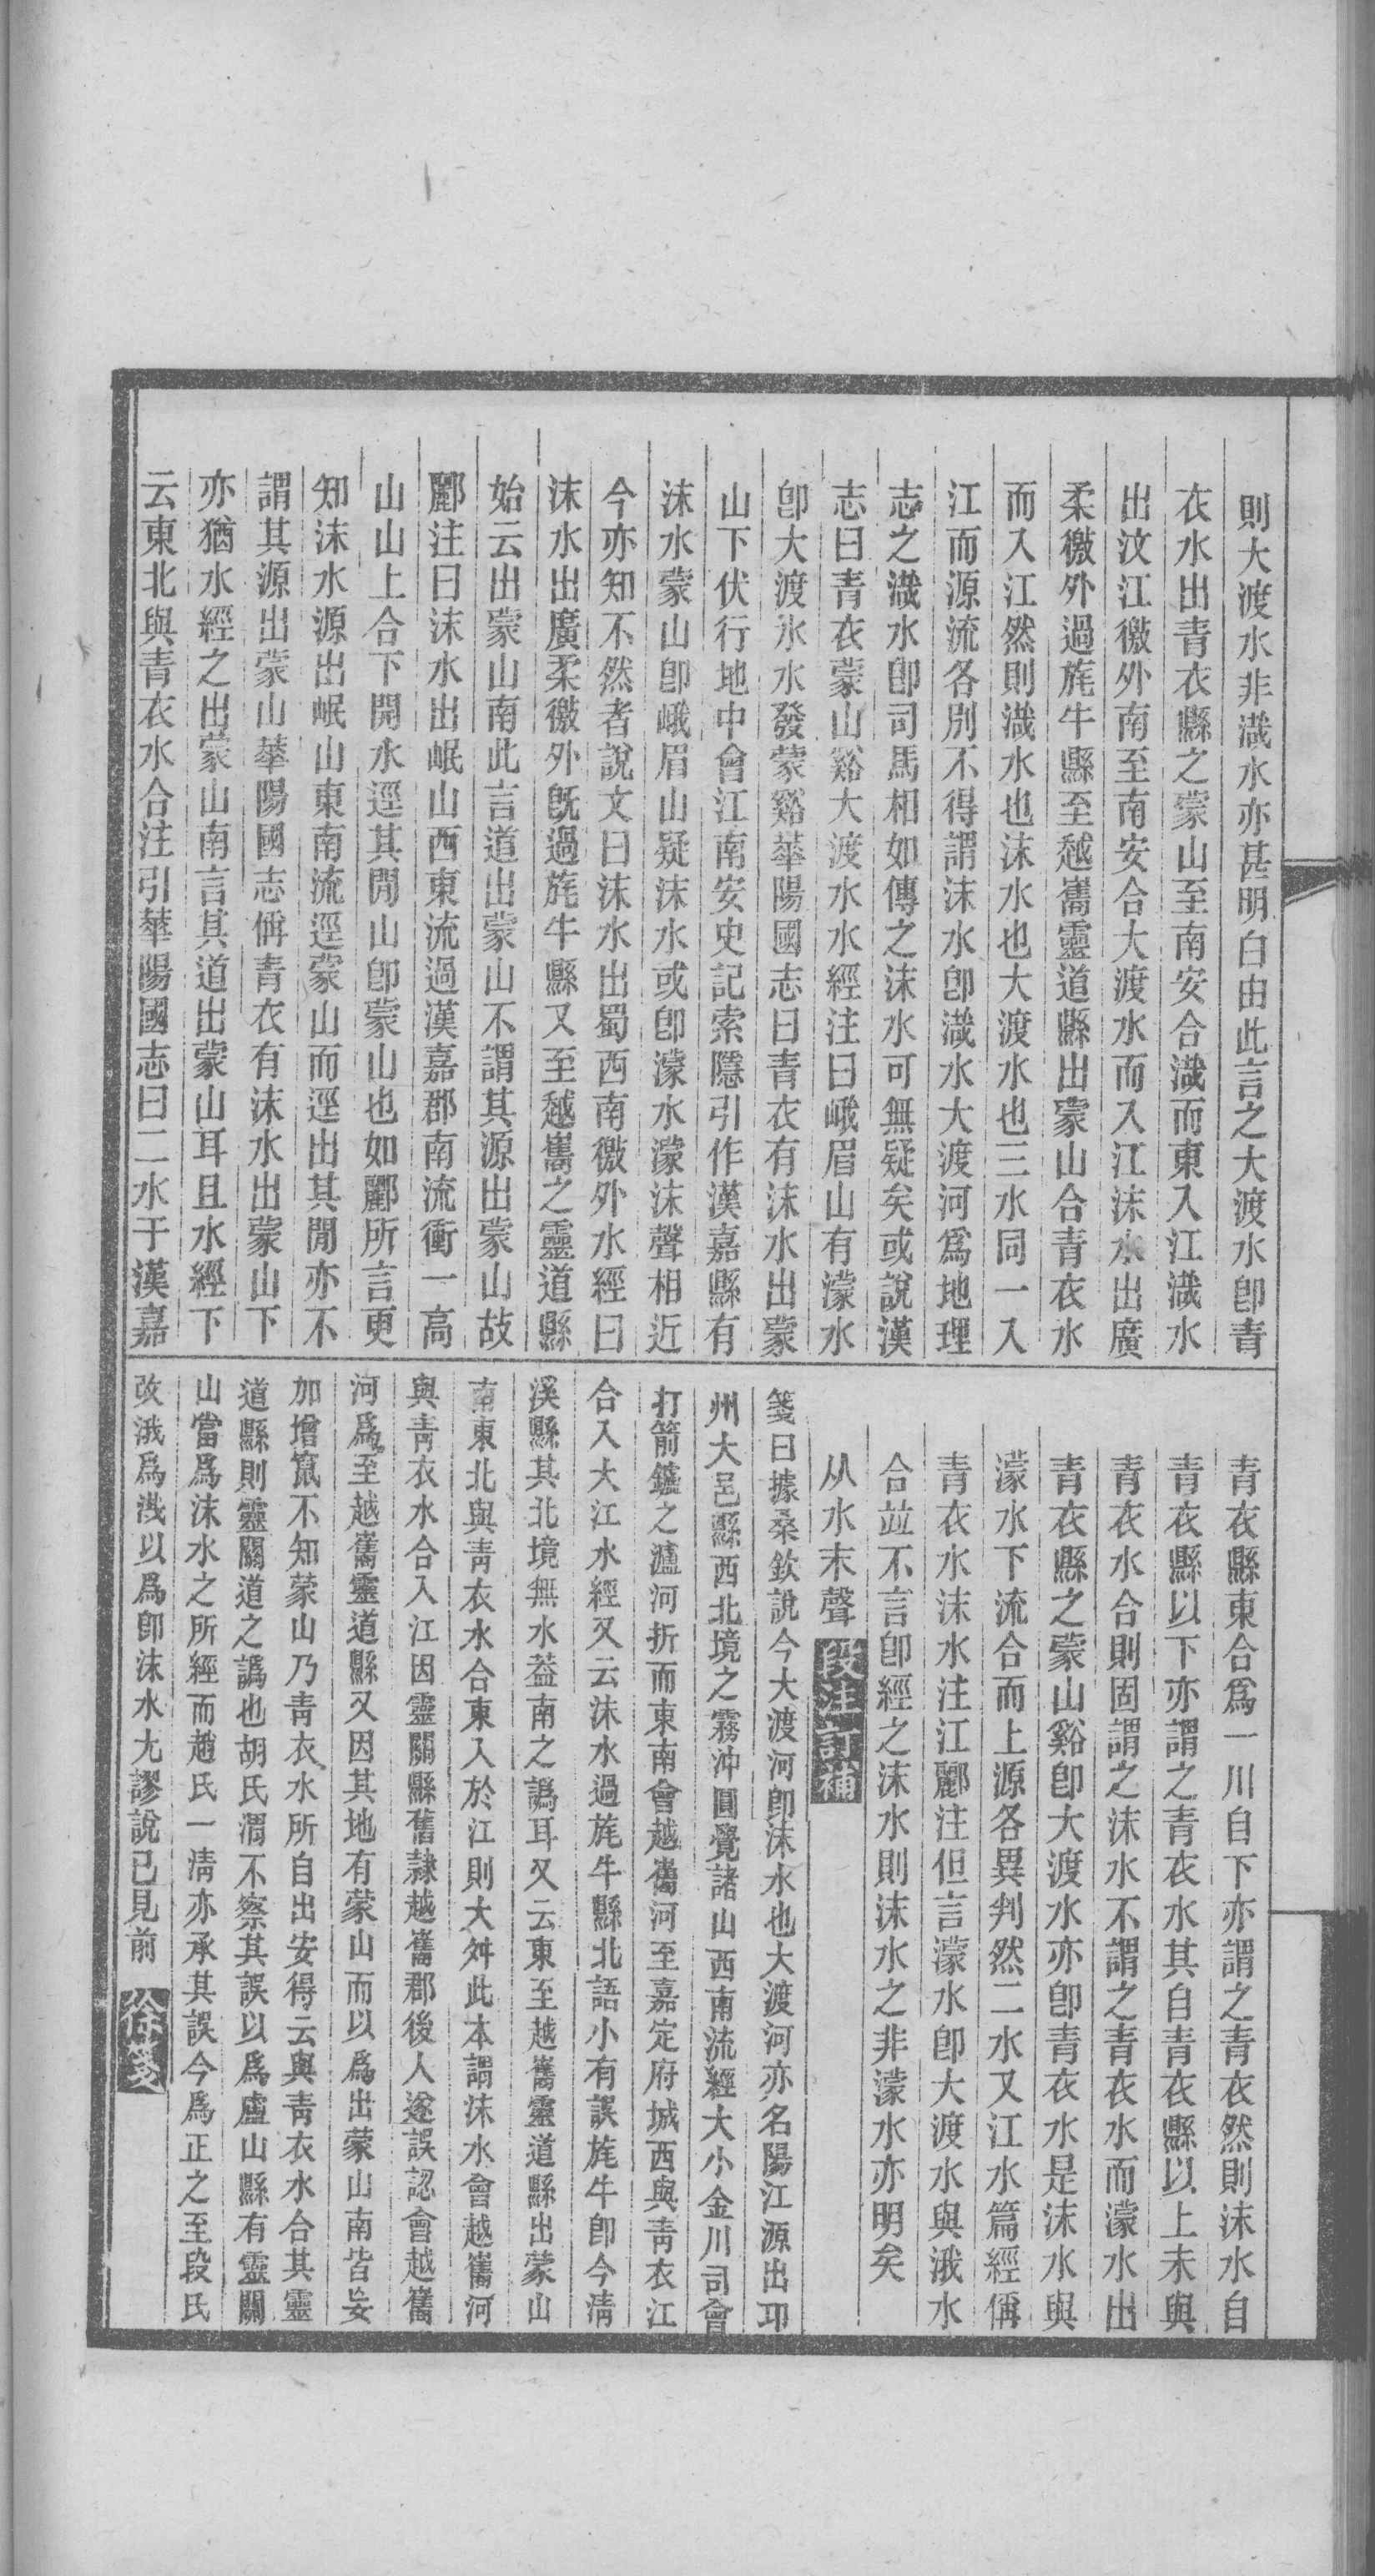 則大渡水非渽水亦甚明白由此言之大渡水卽青
衣水出青衣縣之蒙山至南安合渽而東入江渽水
出汶江徼外南至南安合大渡水而入江沬水出廣
柔徼外過旄牛縣至越巂靈道縣出蒙山合青衣水
而入江然則渽水也沬水也大渡水也三水同一入
江而源流各別不得謂沬水卽渽水大渡河爲地理
志之渽水卽司馬相如傳之沬水可無疑矣或說漢
志曰青衣蒙山谿大渡水水經注曰峨眉山有濛水
卽大渡水水發蒙谿華陽國志曰青衣有沬水出蒙
山下伏行地中會江南安史記索隱引作漢嘉縣有
沬水蒙山卽峨眉山疑沬水或卽濛水濛沬聲相近
今亦知不然者說文曰沬水出蜀西南徼外水經曰
沬水出廣柔徼外旣過旄牛縣又至越巂之靈道縣
始云出蒙山南此言道出蒙山不謂其源出蒙山故
酈注曰沬水出岷山西東流過漢嘉郡南流衝一高
山山上合下開水逕其閒山卽蒙山也如酈所言更
知沬水源出岷山東南流逕蒙山而逕出其閒亦不
謂其源出蒙山華陽國志偁青衣有沬水出蒙山下
亦猶水經之出蒙山南言其道出蒙山耳且水經下
云東北與青衣水合注引華陽國志曰二水于漢嘉
青衣縣東合爲一川自下亦謂之青衣然則沬水自
青衣縣以下亦謂之青衣水其自青衣縣以上未與
青衣水合則固謂之沬水不謂之青衣水而濛水出
青衣縣之蒙山谿卽大渡水亦卽青衣水是沬水與
濛水下流合而上源各異判然二水又江水篇經偁
青衣水沬水注江酈注但言濛水卽大渡水與涐水
合竝不言卽經之沬水則沬水之非濛水亦明矣
从水末聲 段注訂補
箋曰據桑欽說今大渡河卽沬水也大渡河亦名陽江源出邛
州大邑縣西北境之霧沖圓覺諸山西南流經大小金川司會
打箭鑪之瀘河折而東南會越巂河至嘉定府城西與青衣江
合入大江水經又云沬水過旄牛縣北語小有誤旄牛卽今清
溪縣其北境無水葢南之譌耳又云東至越巂靈道縣出蒙山
南東北與青衣水合東入於江則大舛此本謂沬水會越巂河
與青衣水合入江因靈關縣舊隸越巂郡後人遂誤認會越巂
河爲至越巂靈道縣又因其地有蒙山而以爲出蒙山南皆妄
加增竄不知蒙山乃青衣水所自出安得云與青衣水合其靈
道縣則靈關道之譌也胡氏渭不察其誤以爲盧山縣有靈關
山當爲沬水之所經而趙氏一清亦承其誤今爲正之至段氏
改涐爲渽以爲卽沬水尤謬說已見前 徐箋